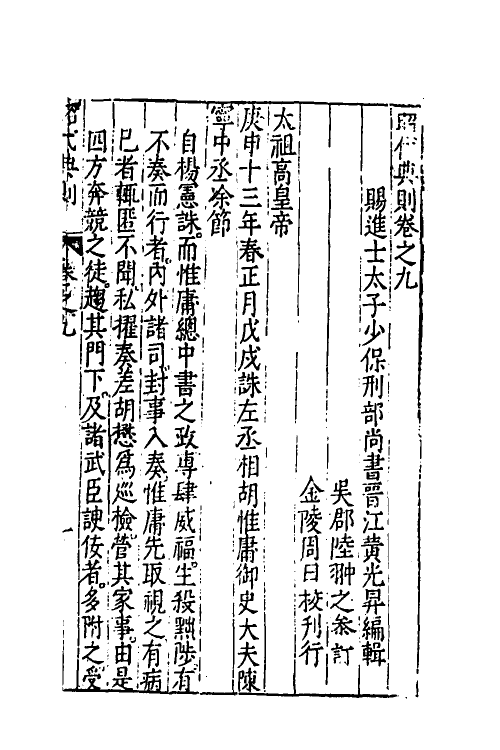 昭代典則卷之九
賜進士太子少保刑部尚書晉江黃光昇編輯
吳郡陸翀之叅訂
金陵周曰校刊行
太祖高皇帝
庚申十三年春正月戊戌誅左丞相胡惟庸御史大夫陳
寧中丞涂節
自楊憲誅。而惟庸總中書之政專肆威福。生殺黜陟。有
不奏而行者。內外諸司封事入奏惟庸先取視之有病
已者輒匿不聞。私擢奏差胡懋爲巡檢。營其家事。由是
四方奔競之徒。趨其門下。及諸武臣諛佞者。多附之受
昭代典則
卷之九
一